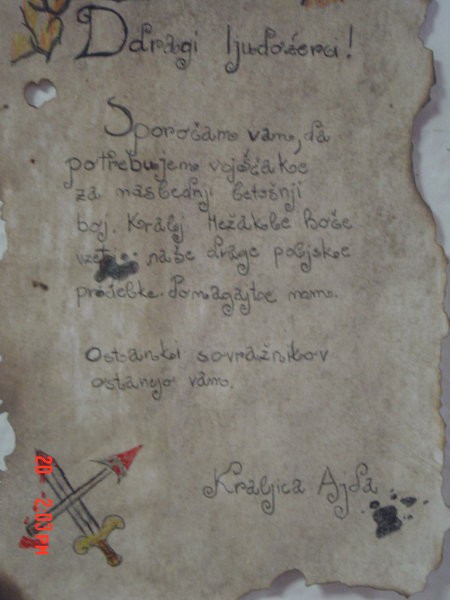 Ddragi ljudožerci!
Sporočam vam, da
potrebujem vojščake
za naslednji letošnji
boj. Kralj Mežakle hoče
vzeti naše drage poljske
pridelke. Pomagajte nam.
Ostanki sovražnikov
ostanejo vam.
Kraljica Ajda